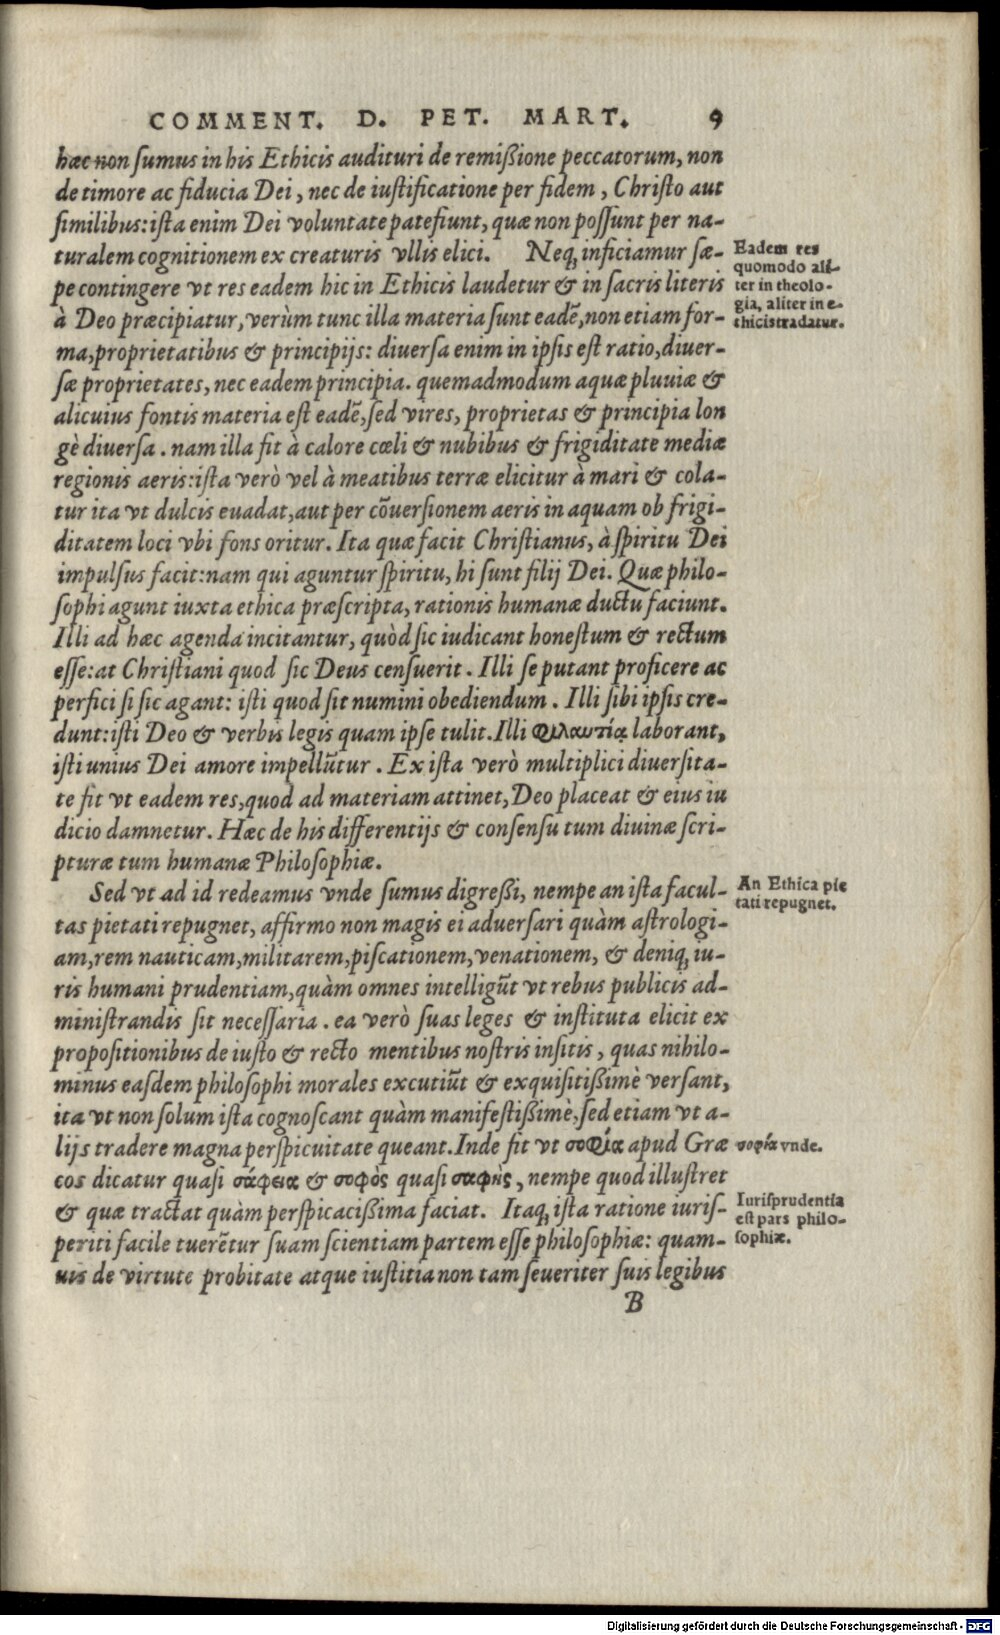 COMMENT. D. PET. MART. 9
hæc non ſumus in his Ethicis audituri de remißione peccatorum, non
de timore ac fiducia Dei, nec de iuſtificatione per fidem, Chriſto aut
ſimilibus: iſta enim Dei voluntate patefiunt, quæ non poſſunt per na-
turalem cognitionem ex creaturis vllis elici. Neq; inficiamur ſæ-
pe contingere vt res eadem hic in Ethicis laudetur & in ſacris literis
à Deo præcipiatur, verùm tunc illa materia ſunt eadē, non etiam for-
ma, proprietatibus & principijs: diuerſa enim in ipſis eſt ratio, diuer-
ſæ proprietates, nec eadem principia. quemadmodum aquæ pluuiæ &
alicuius fontis materia eſt eadē, ſed vires, proprietas & principia lon
gè diuerſa. nam illa fit à calore cœli & nubibus & frigiditate mediæ
regionis aeris: iſta verò vel à meatibus terræ elicitur à mari & cola-
tur ita vt dulcis euadat, aut per cōuerſionem aeris in aquam ob frigi-
ditatem loci vbi fons oritur. Ita quæ facit Chriſtianus, à ſpiritu Dei
impulſus facit: nam qui aguntur ſpiritu, hi ſunt filij Dei. Quæ philo-
ſophi agunt iuxta ethica præſcripta, rationis humanæ ductu faciunt.
Illi ad hæc agenda incitantur, quòd ſic iudicant honeſtum & rectum
eſſe: at Chriſtiani quod ſic Deus cenſuerit. Illi ſe putant proficere ac
perfici ſi ſic agant: iſti quod ſit numini obediendum. Illi ſibi ipſis cre-
dunt: iſti Deo & verbis legis quam ipſe tulit. Illi φιλαυτίᾳ laborant,
iſti unius Dei amore impellūtur. Ex iſta verò multiplici diuerſita-
te fit vt eadem res, quod ad materiam attinet, Deo placeat & eius iu
dicio damnetur. Hæc de his differentijs & conſenſu tum diuinæ ſcri-
pturæ tum humanæ Philoſophiæ.
Sed vt ad id redeamus vnde ſumus digreßi, nempe an iſta facul-
tas pietati repugnet, affirmo non magis ei aduerſari quàm aſtrologi-
am, rem nauticam, militarem, piſcationem, venationem, & deniq; iu-
ris humani prudentiam, quàm omnes intelligūt vt rebus publicis ad-
miniſtrandis ſit neceſſaria. ea verò ſuas leges & inſtituta elicit ex
propoſitionibus de iuſto & recto mentibus noſtris inſitis, quas nihilo-
minus eaſdem philoſophi morales excutiūt & exquiſitißimè verſant,
ita vt non ſolum iſta cognoſcant quàm manifeſtißimè, ſed etiam vt a-
lijs tradere magna perſpicuitate queant. Inde fit vt σοφία apud Græ
cos dicatur quaſi σάφεια & σοφὸς quaſi σαφὴς, nempe quod illuſtret
& quæ tractat quàm perſpicacißima faciat. Itaq; iſta ratione iuriſ-
periti facile tuerētur ſuam ſcientiam partem eſſe philoſophiæ: quam-
uis de virtute probitate atque iuſtitia non tam ſeueriter ſuis legibus
B
Eadem res
quomodo ali-
ter in theolo-
gia, aliter in e-
thicis tradatur.
An Ethica pie
tati repugnet.
σοφία vnde.
Iuriſprudentia
eſt pars philo-
ſophiæ.
Digitalisierung gefördert durch die Deutsche Forschungsgemeinschaft - DFG